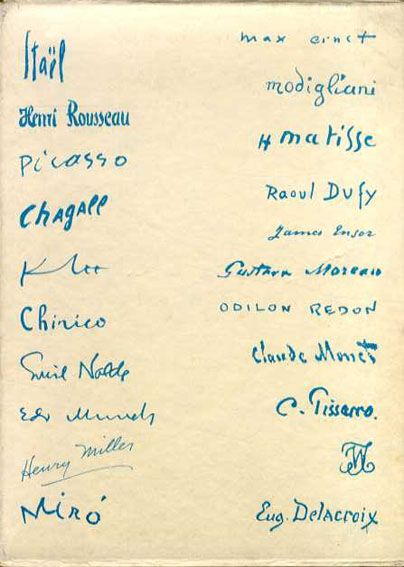 Staël
Henri Rousseau
Picasso
Chagall
Klee
Chirico
Emil Nolde
Edv Munch
Henry Miller
Miró
max ernst
modigliani
H matisse
Raoul Dufy
James Ensor
Gustave Moreau
ODILON REDON
Claude Monet
C. Pissarro.
Eug. Delacroix